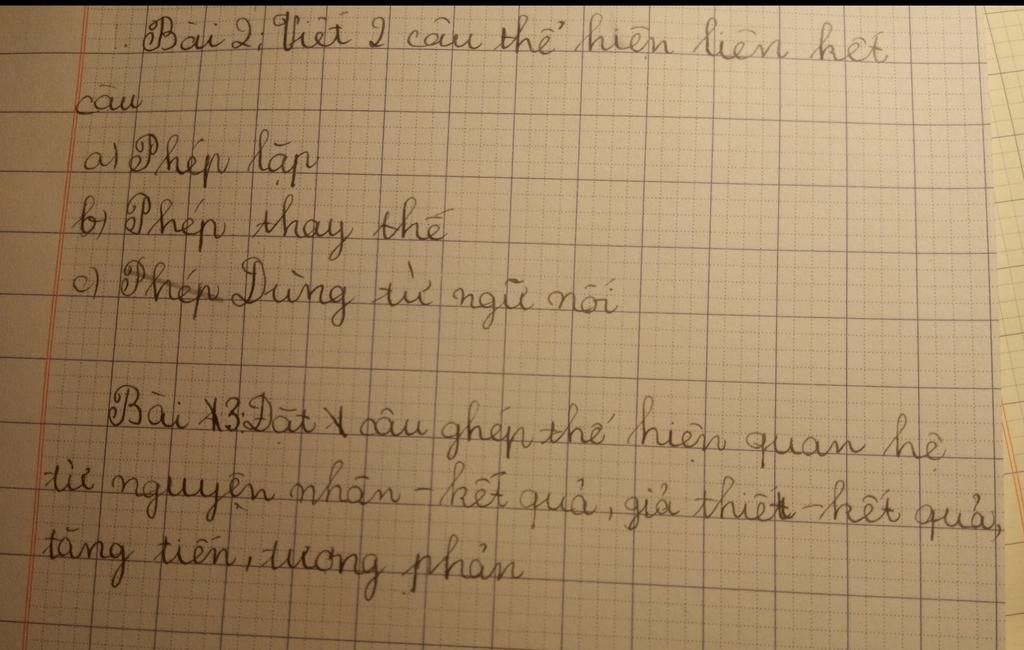 Bài 2: Viết 2 câu thể hiện liên kết
câu
a) Phép lặp
b) Phép thay thế
c) Phép Dùng từ ngữ nối
Bài 3: Đặt câu ghép thể hiện quan hệ
từ nguyện nhân - kết quả, giả thiết - kết quả,
tăng tiến, tương phản